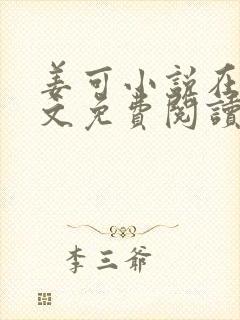 姜可小説在
文免費閱讀
李三爺